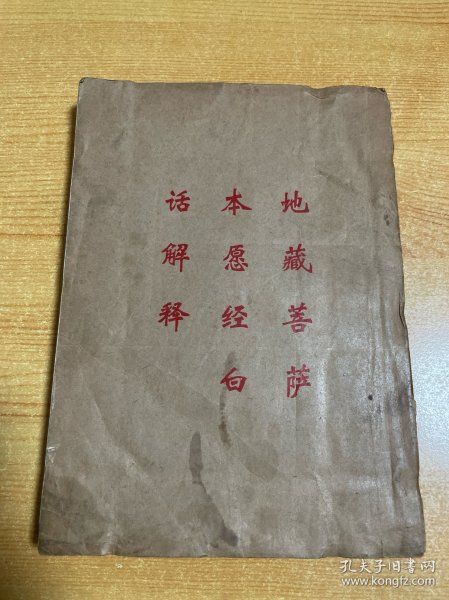 地藏菩萨
本愿经白
话解释
孔夫子旧书网
www.kongfz.com